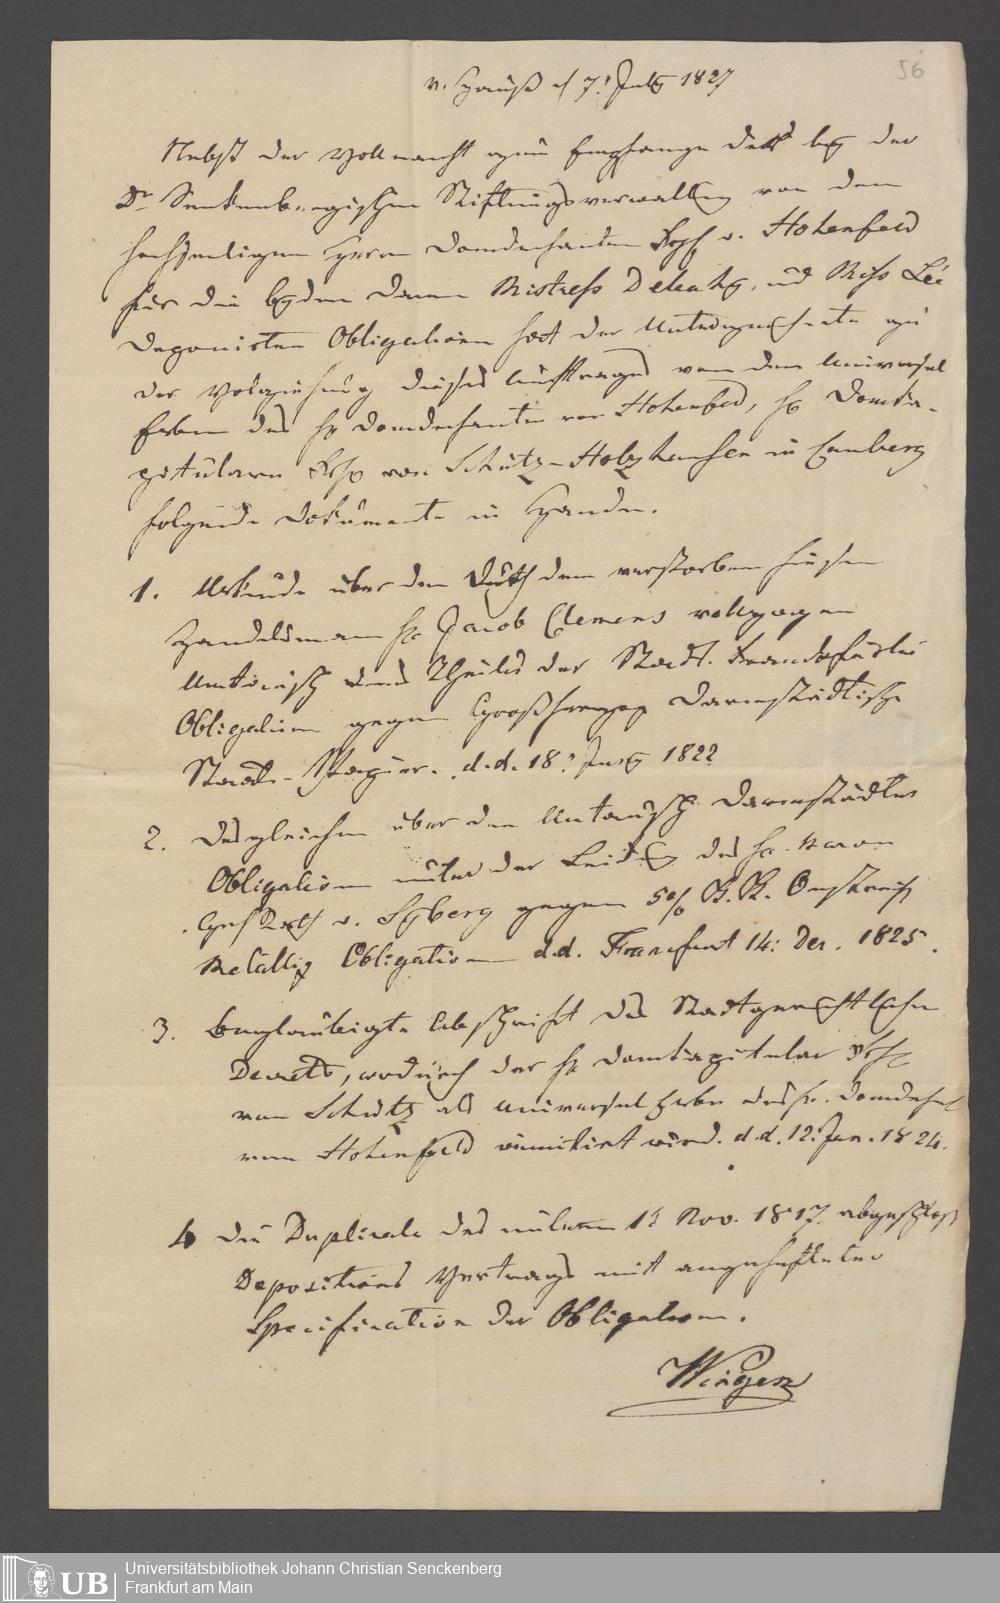 56
v. Hauß d 7t July 1827
Nebst der Vollmacht zum Empfange der bey der
Dr. Senkenbergischen Stiftungsverwaltung von dem
hochseeligen Herrn Domdechanten Frhl v. Hohenfeld
für die beyden Damen Mistress Delahy, und Miss Lée
deponirten Obligationen hat der Unterzeichnete zu
der Vollziehung dieses Auftrages von dem Universal
Erben des H Domdechanten von Hohenfeld, H Domka-
pitularn Frhl von Schütz-Holzhausen in Camberg
folgende Dokumente in Handen.
1. Urkunde über den durch den verstorbenen hiesigen
Handelsmann H. Jacob Clemens vollzogenen
Umtausch eines Theiles der Stadt Frankfurter
Obligationen gegen Großherzogl Darmstädtische
Staats-Papiere. d.d. 18t July 1822
2. Desgleichen über den Umtausch Darmstädter
Obligationen unter der Leitung des H. Baron
v. Syberg gegen 5% K.K. Oestreich
Metalliq Obligationen d.d. Francfurt 14: Dec. 1825.
3. Beglaubigte Abschrift des Stadtgerichtlichen
Decrets, wodurch der H Domkapitular Frhl
von Schütz als Universal Erbe des H. Domdechant
von Hohenfeld immitirt wird. d.d. 12. Jan. 1824.
4 Die Duplicate des unterm 1t Nov. 1817. abgeschloss
Depositions Vertrags mit angehefteter
Specification der Obligationen.
Wingen
UB Universitätsbibliothek Johann Christian Senckenberg
Frankfurt am Main